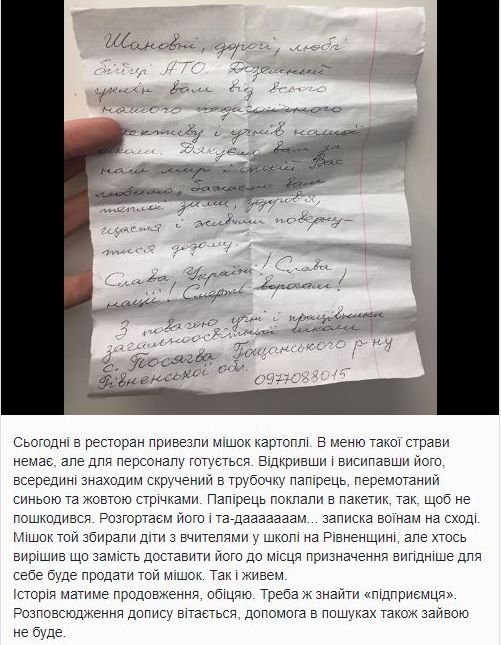 Шановні, дорогі, любі
бійці АТО. Доземний
уклін вам від всього
нашого педагогічного
колективу і учнів нашої
школи. Дякуємо вам за
наш мир і спокій Вас
любимо, бажаємо вам
теплої зими, здоров'я,
щастя і живими поверну-
тися додому.
Слава Україні! Слава
нації! Смерть ворогам!
З повагою учні і працівники
загальноосвітньої школи
с. Посягва Гощанського р-ну
Рівненської обл.
0977088015
Сьогодні в ресторан привезли мішок картоплі. В меню такої страви
немає, але для персоналу готується. Відкривши і висипавши його,
всередині знаходим скручений в трубочку папірець, перемотаний
синьою та жовтою стрічками. Папірець поклали в пакетик, так, щоб не
пошкодився. Розгортаєм його і та-дааааааам... записка воїнам на сході.
Мішок той збирали діти з вчителями у школі на Рівненщині, але хтось
вирішив що замість доставити його до місця призначення вигідніше для
себе буде продати той мішок. Так і живем.
Історія матиме продовження, обіцяю. Треба ж знайти «підприємця».
Розповсюдження допису вітається, допомога в пошуках також зайвою
не буде.